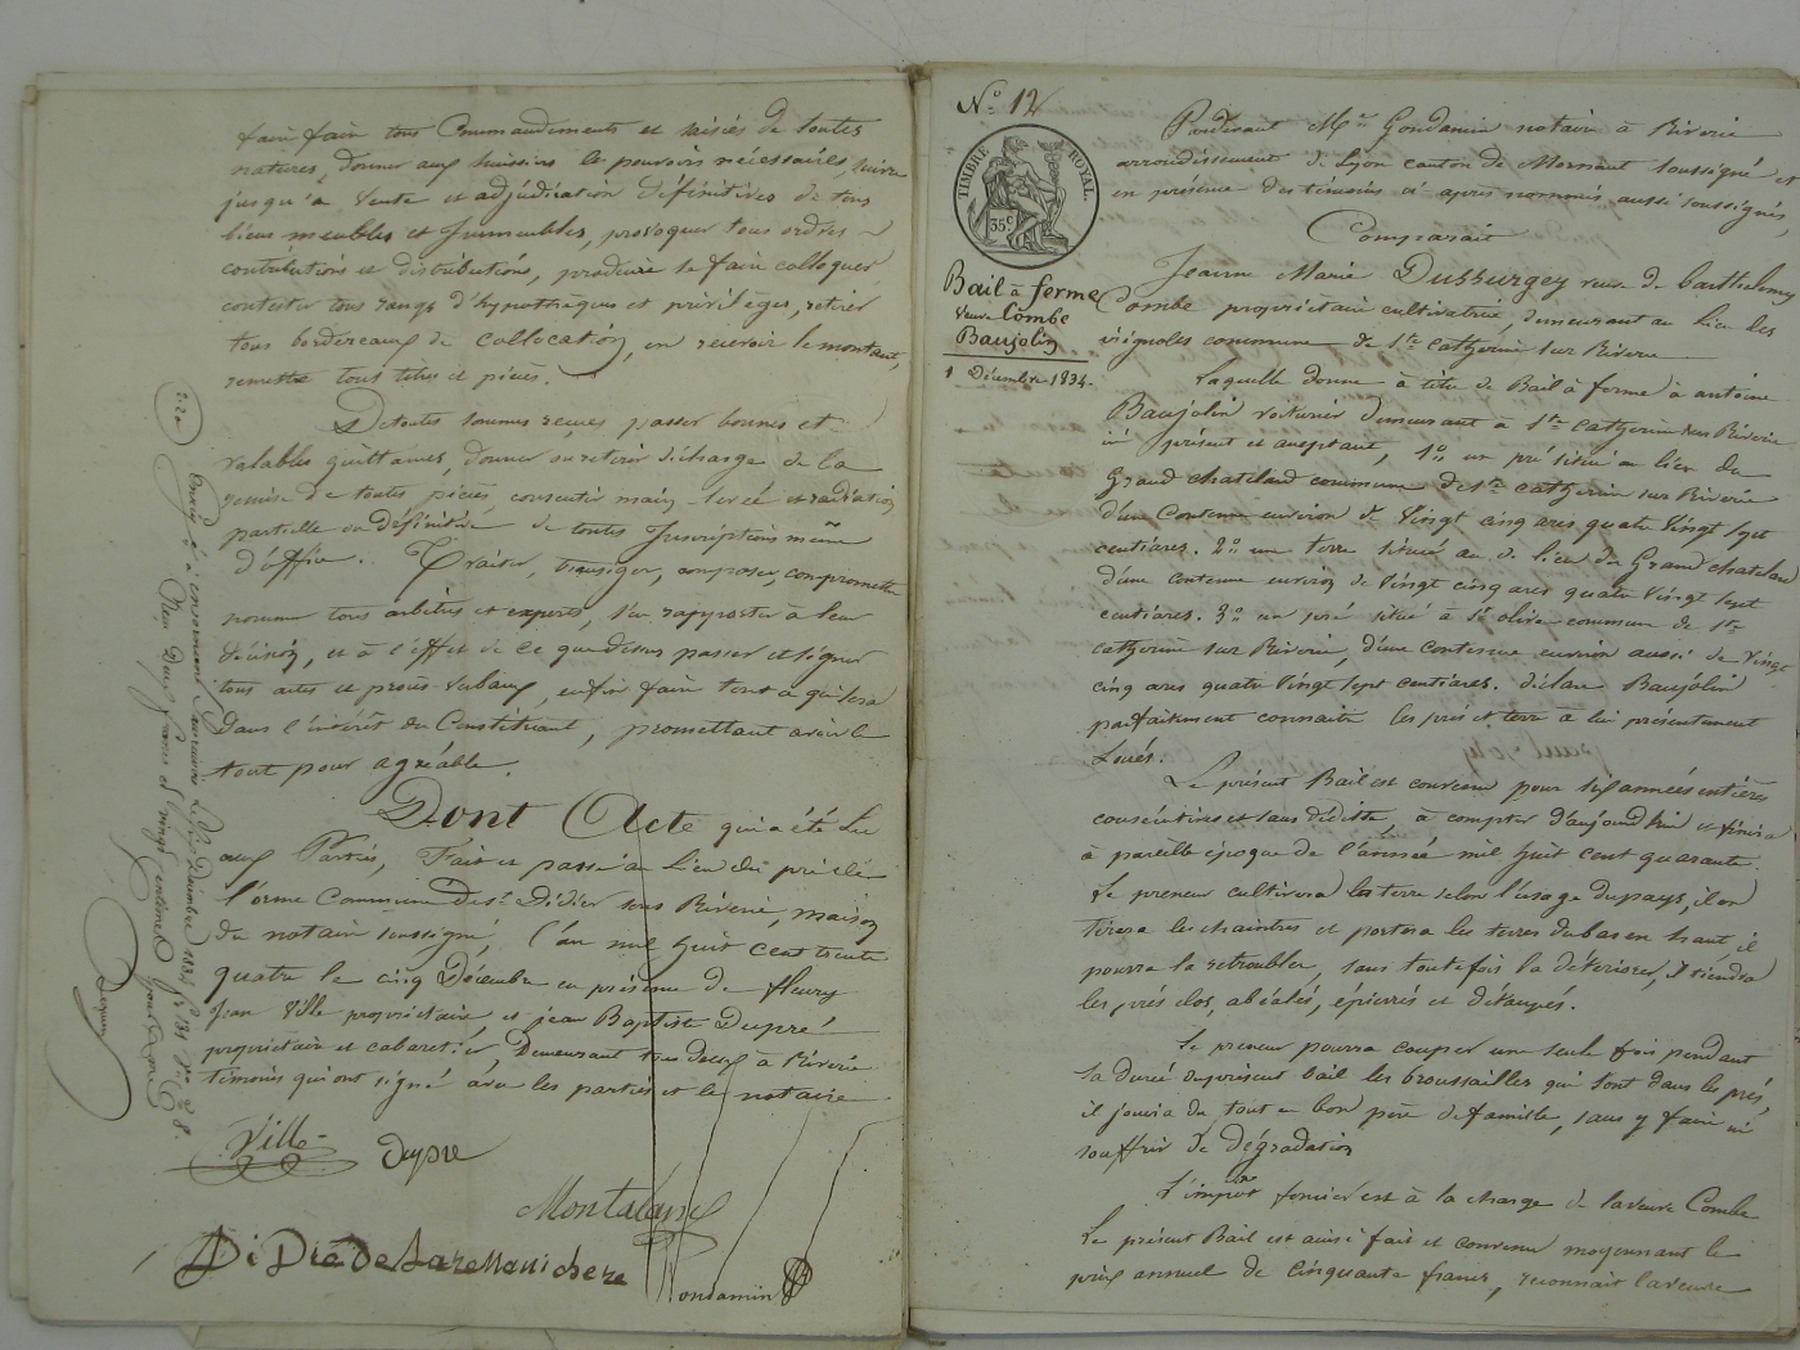 faire faire tous Commandements et saisies de toutes
natures, donner aux huissiers les pouvoirs nécessaires, suivre
jusqu'à vente et adjudication définitives de tous
biens meubles et Immeubles, provoquer tous ordres
contributions et distributions, produire se faire colloquer
contester tous rangs d'hypothèques et privilèges, retirer
tous bordereaux de collocation, en recevoir le montant,
remettre tous titres et pièces.
De toutes sommes reçues passer bonnes et
valables quittances, donner ou retirer décharge de la
remise de toutes pièces, consentir main-levée et radiation
partielle ou définitive de toutes Inscriptions même
d'office. Traiter, transiger, composer, compromettre
nommer tous arbitres et experts, s'en rapporter à leur
décision, et à l'effet de ce que dessus passer et signer
tous actes et procès-verbaux, enfin faire tout ce qui sera
Dans l'intérêt du Constituant, promettant avoir le
tout pour agréable.
Dont Acte qui a été Lu
aux Parties, Fait et passé au Lieu du pré de
l'orme Commune de St Didier sous Riverie, maison
du notaire soussigné, l'an mil huit cent trente
quatre le cinq Décembre en présence de fleury
Jean Ville propriétaire, et jean Baptiste Dupré
propriétaire et cabaretier, Demeurant tous deux à Riverie
témoins qui ont signé avec les parties et le notaire
Ville
Dupre
Montaland
Di Dié De La
Gondamin
2.20
Enregé à mornant Décembre 1834 fo 131 8.
Reçu Deux francs et vingt centimes
No 12
TIMBRE ROYAL.
35c
Bail à ferme
Veuve Combe
Baujolin
1 Décembre 1834.
Pardevant Me Gondamin notaire à Riverie
arrondissement de Lyon canton de Mornant soussigné et
en présence des témoins ci-après nommés aussi soussignés,
Comparait
Jeanne Marie Dussurgey veuve de barthelemy
Combe propriétaire cultivatrice, demeurant au Lieu des
vignoles commune de Ste Catherine sur Riverie
Laquelle donne à titre de Bail à ferme à antoine
Baujolin voiturier demeurant à Ste catherine sur Riverie
ici présent et acceptant, 1o un pré situé au lieu du
Grand chatelard commune de Ste catherine sur Riverie
d'une Contenue environ de vingt cinq ares quatre vingt sept
centiares. 2o une terre située au d. lieu du Grand chatelard
d'une contenue environ de vingt cinq ares quatre vingt sept
centiares. 3o un pré situé à St olive commune de Ste
catherine sur Riverie, d'une Contenue environ aussi de vingt
cinq ares quatre vingt sept centiares. déclare Baujolin
parfaitement connaitre les prés et terre à lui présentement
Loués.
Le présent Bail est convenu pour six années entières
consécutives et sans dédite, à compter d'aujourd'hui et finira
à pareille époque de l'année mil huit cent quarante.
Le preneur cultivera la terre selon l'usage du pays, il en
tirera les chaintres et portera les terres du bas en haut, il
pourra la retroubler, sans toutefois la détériorer, Il tiendra
les prés clos, abéalés, épierrés et détaupés.
Le preneur pourra couper une seule fois pendant
la durée du présent bail les broussailles qui sont dans les prés,
il jouira du tout en bon père de famille, sans y faire ni
souffrir de dégradation
L'impôt foncier est à la charge de la veuve Combe
Le présent Bail est ainsi fait et convenu moyennant le
prix annuel de Cinquante francs, reconnait la veuve